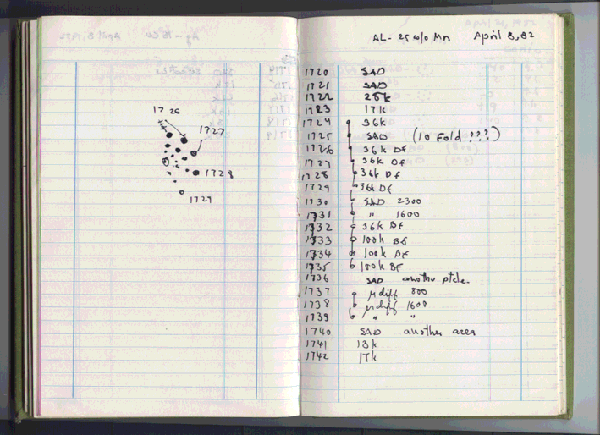 1726
1727
1728
1729
Al- 25 w/o Mn April 8, 82
1720 SAD
1721 SAD
1722 25k
1723 17k
1724 36k
1725 SAD (10 Fold ???)
1726 36k DF
1727 36k DF
1728 36k DF
1729 36k DF
1730 SAD 2300
1731 " 1600
1732 36k DF
1733 100k BF
1734 100k DF
1735 100k BF
1736 SAD another ptcle.
1737 μdiff 800
1738 μdiff 1600
1739 " "
1740 SAD another area
1741 13k
1742 17k